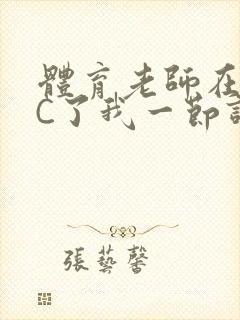 體育老師在
C了我一節
張藝馨